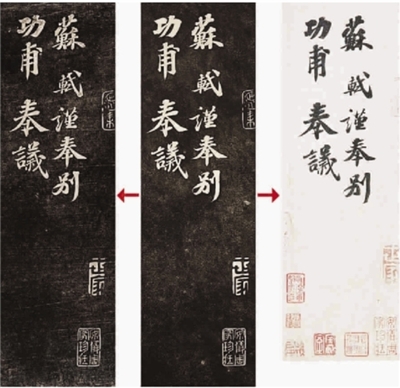 蘇軾謹奉別
功甫奉議
蘇軾謹奉別
功甫奉議
蘇軾謹奉別
功甫奉議